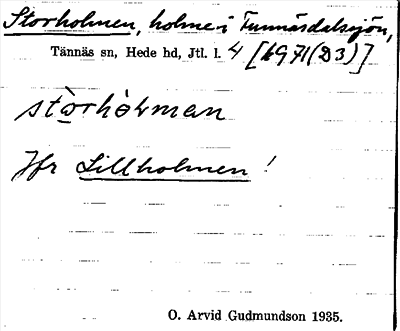 Storholmen, holme i Funnäsdalssjön,
Tännäs sn, Hede hd, Jtl. l. 4 [6971(D3)]
stòrhòlman
Jfr Lillholmen!
O. Arvid Gudmundson 1935.